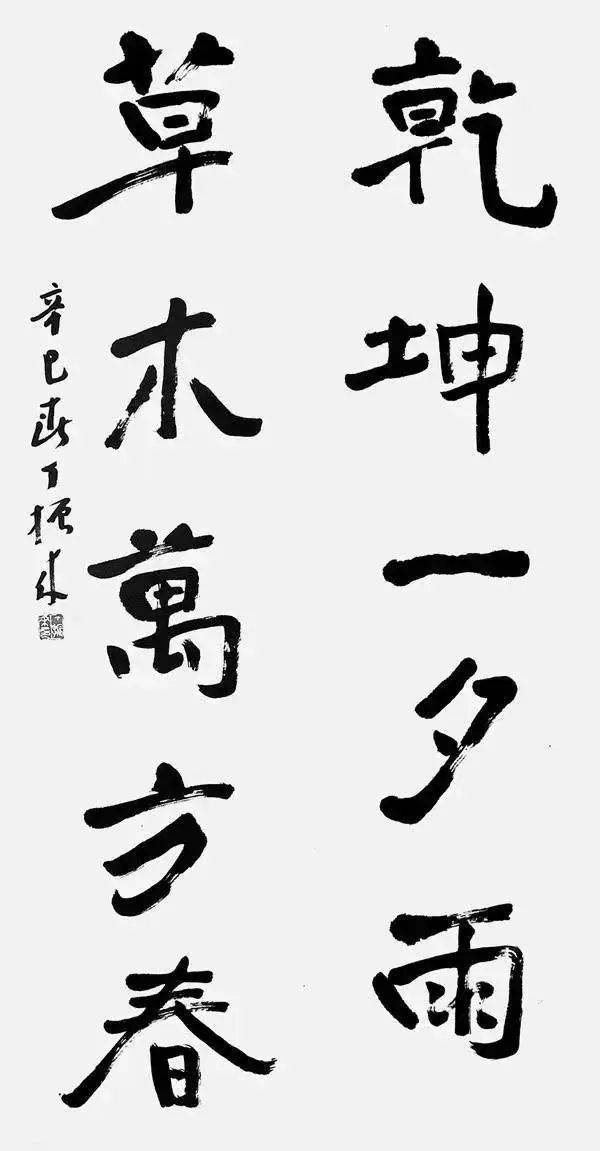 乾坤一夕雨
草木萬方春
辛巳春丁振來